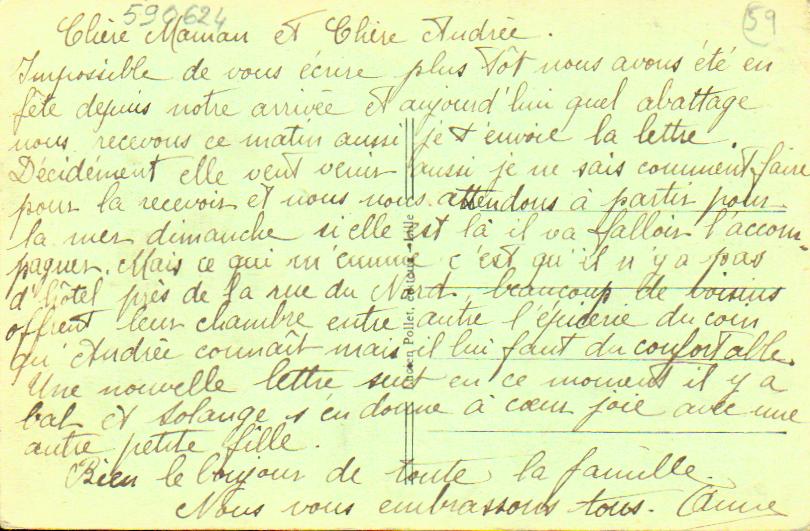 590624
59
Chère Maman et Chère Andrée.
Impossible de vous écrire plus tôt nous avons été en
fête depuis notre arrivée et aujourd'hui quel abattage
nous recevons ce matin aussi je t'envoie la lettre.
Décidément elle veut venir aussi je ne sais comment faire
pour la recevoir et nous nous attendons à partir pour
la mer dimanche si elle est là il va falloir l'accom-
pagner. Mais ce qui m'ennuie c'est qu'il n'y a pas
d'hôtel près de la rue du Nord beaucoup de voisins
offrent leur chambre entre autre l'épicerie du coin
qu'Andrée connaît mais il lui faut du confortable.
Une nouvelle lettre suit en ce moment il y a
bal et Solange s'en donne à cœur joie avec une
autre petite fille.
Bien le bonjour de toute la famille.
Nous vous embrassons tous. Anne
Lucien Pollet, éditeur, Lille